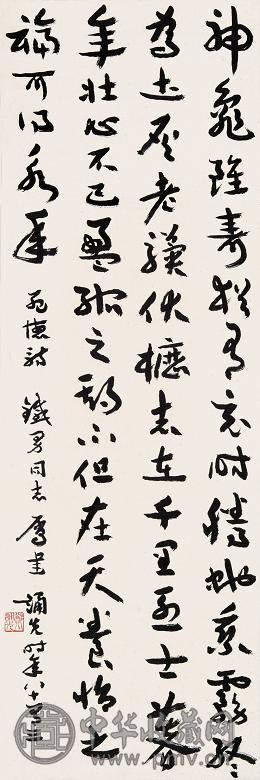 神龜雖壽猶有竟時騰蛇乘霧終
為土灰老驥伏櫪志在千里烈士暮
年壯心不已盈縮之期不但在天養怡之
福可得永年
鐵男同志屬書 誦先時年八十
中华收藏网